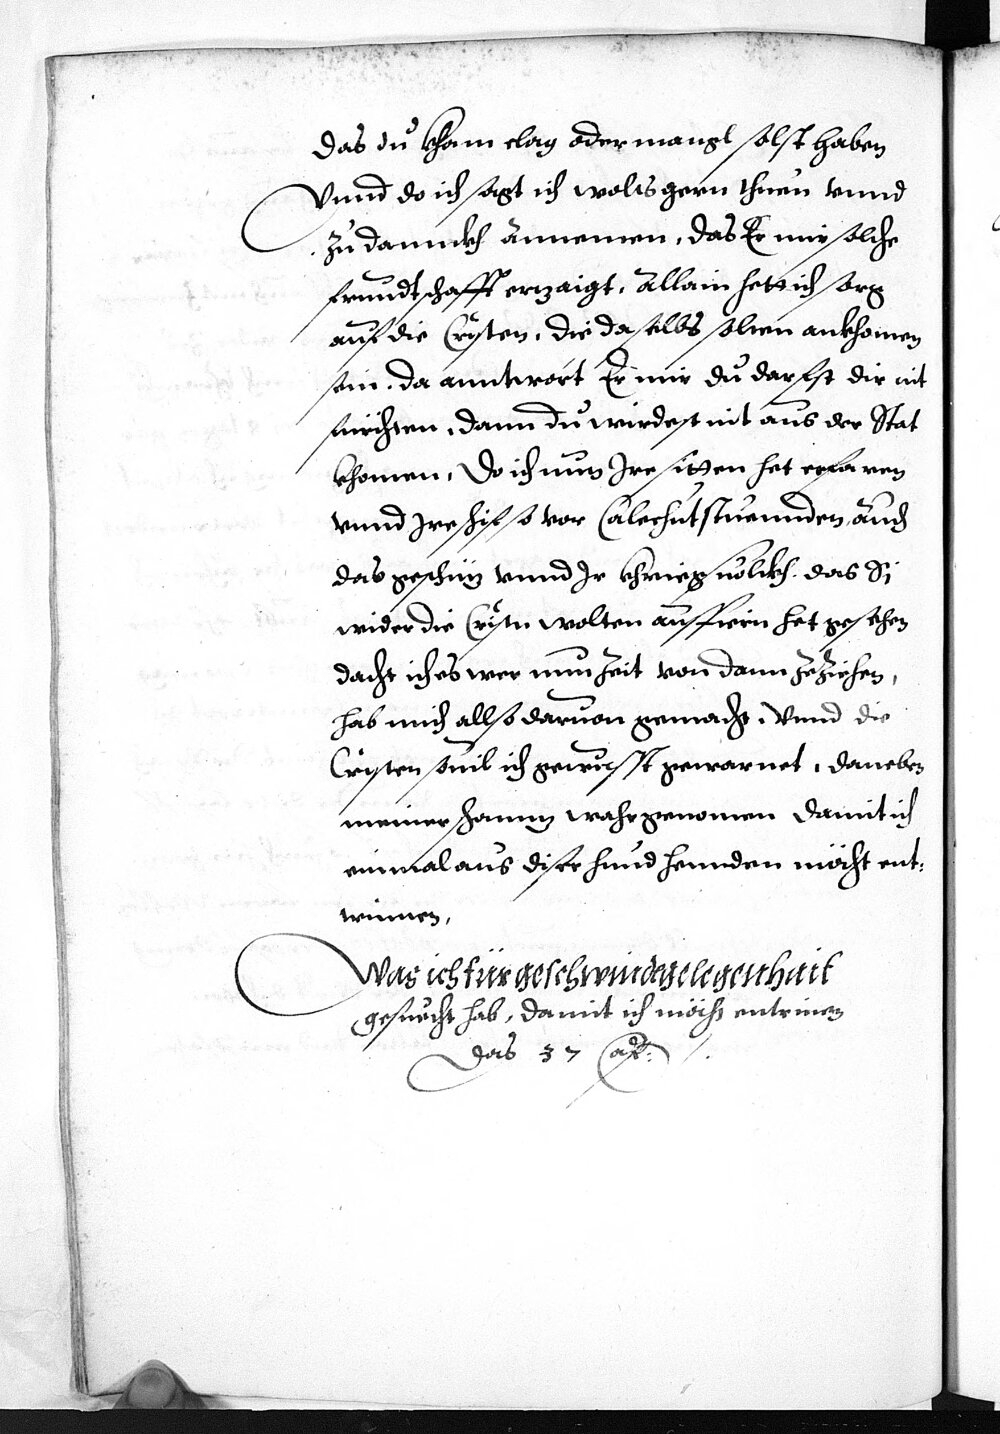 das du kham clag oder mangl solst haben
Vnnd do ich sagt ich wolts gern thuen vnnd
zu dannckh annemen, das Er mir solche
freundtschafft erzaigt, allain hett ich sorg
auf die Cristen, die daselbs solten ankhomen
sein. da anntwort Er mir du darffst dir nit
fürchten, dann du wirdest nit aus der Stat
khomen, Do ich nun Ire sitten het erfaren
vnnd Ire schif so vor Calechut stuennden, auch
das geschüz vnnd Ir khriegsuolckh. das Si
wider die Cristn wolten auffieren het gesehen
dacht ich es wer nun zeit von dann zeziehen,
hab mich allso daruon gemacht. Vnnd die
Cristen souil ich gewisst gewarnet, daneben
meiner schannz wahrgenomen damit ich
einmal aus diser hund hennden möcht ent-
winnen,
Was ich für geschwinde gelegenhait
gesuecht hab, damit ich möcht entrinnen
Das 37 Cap: